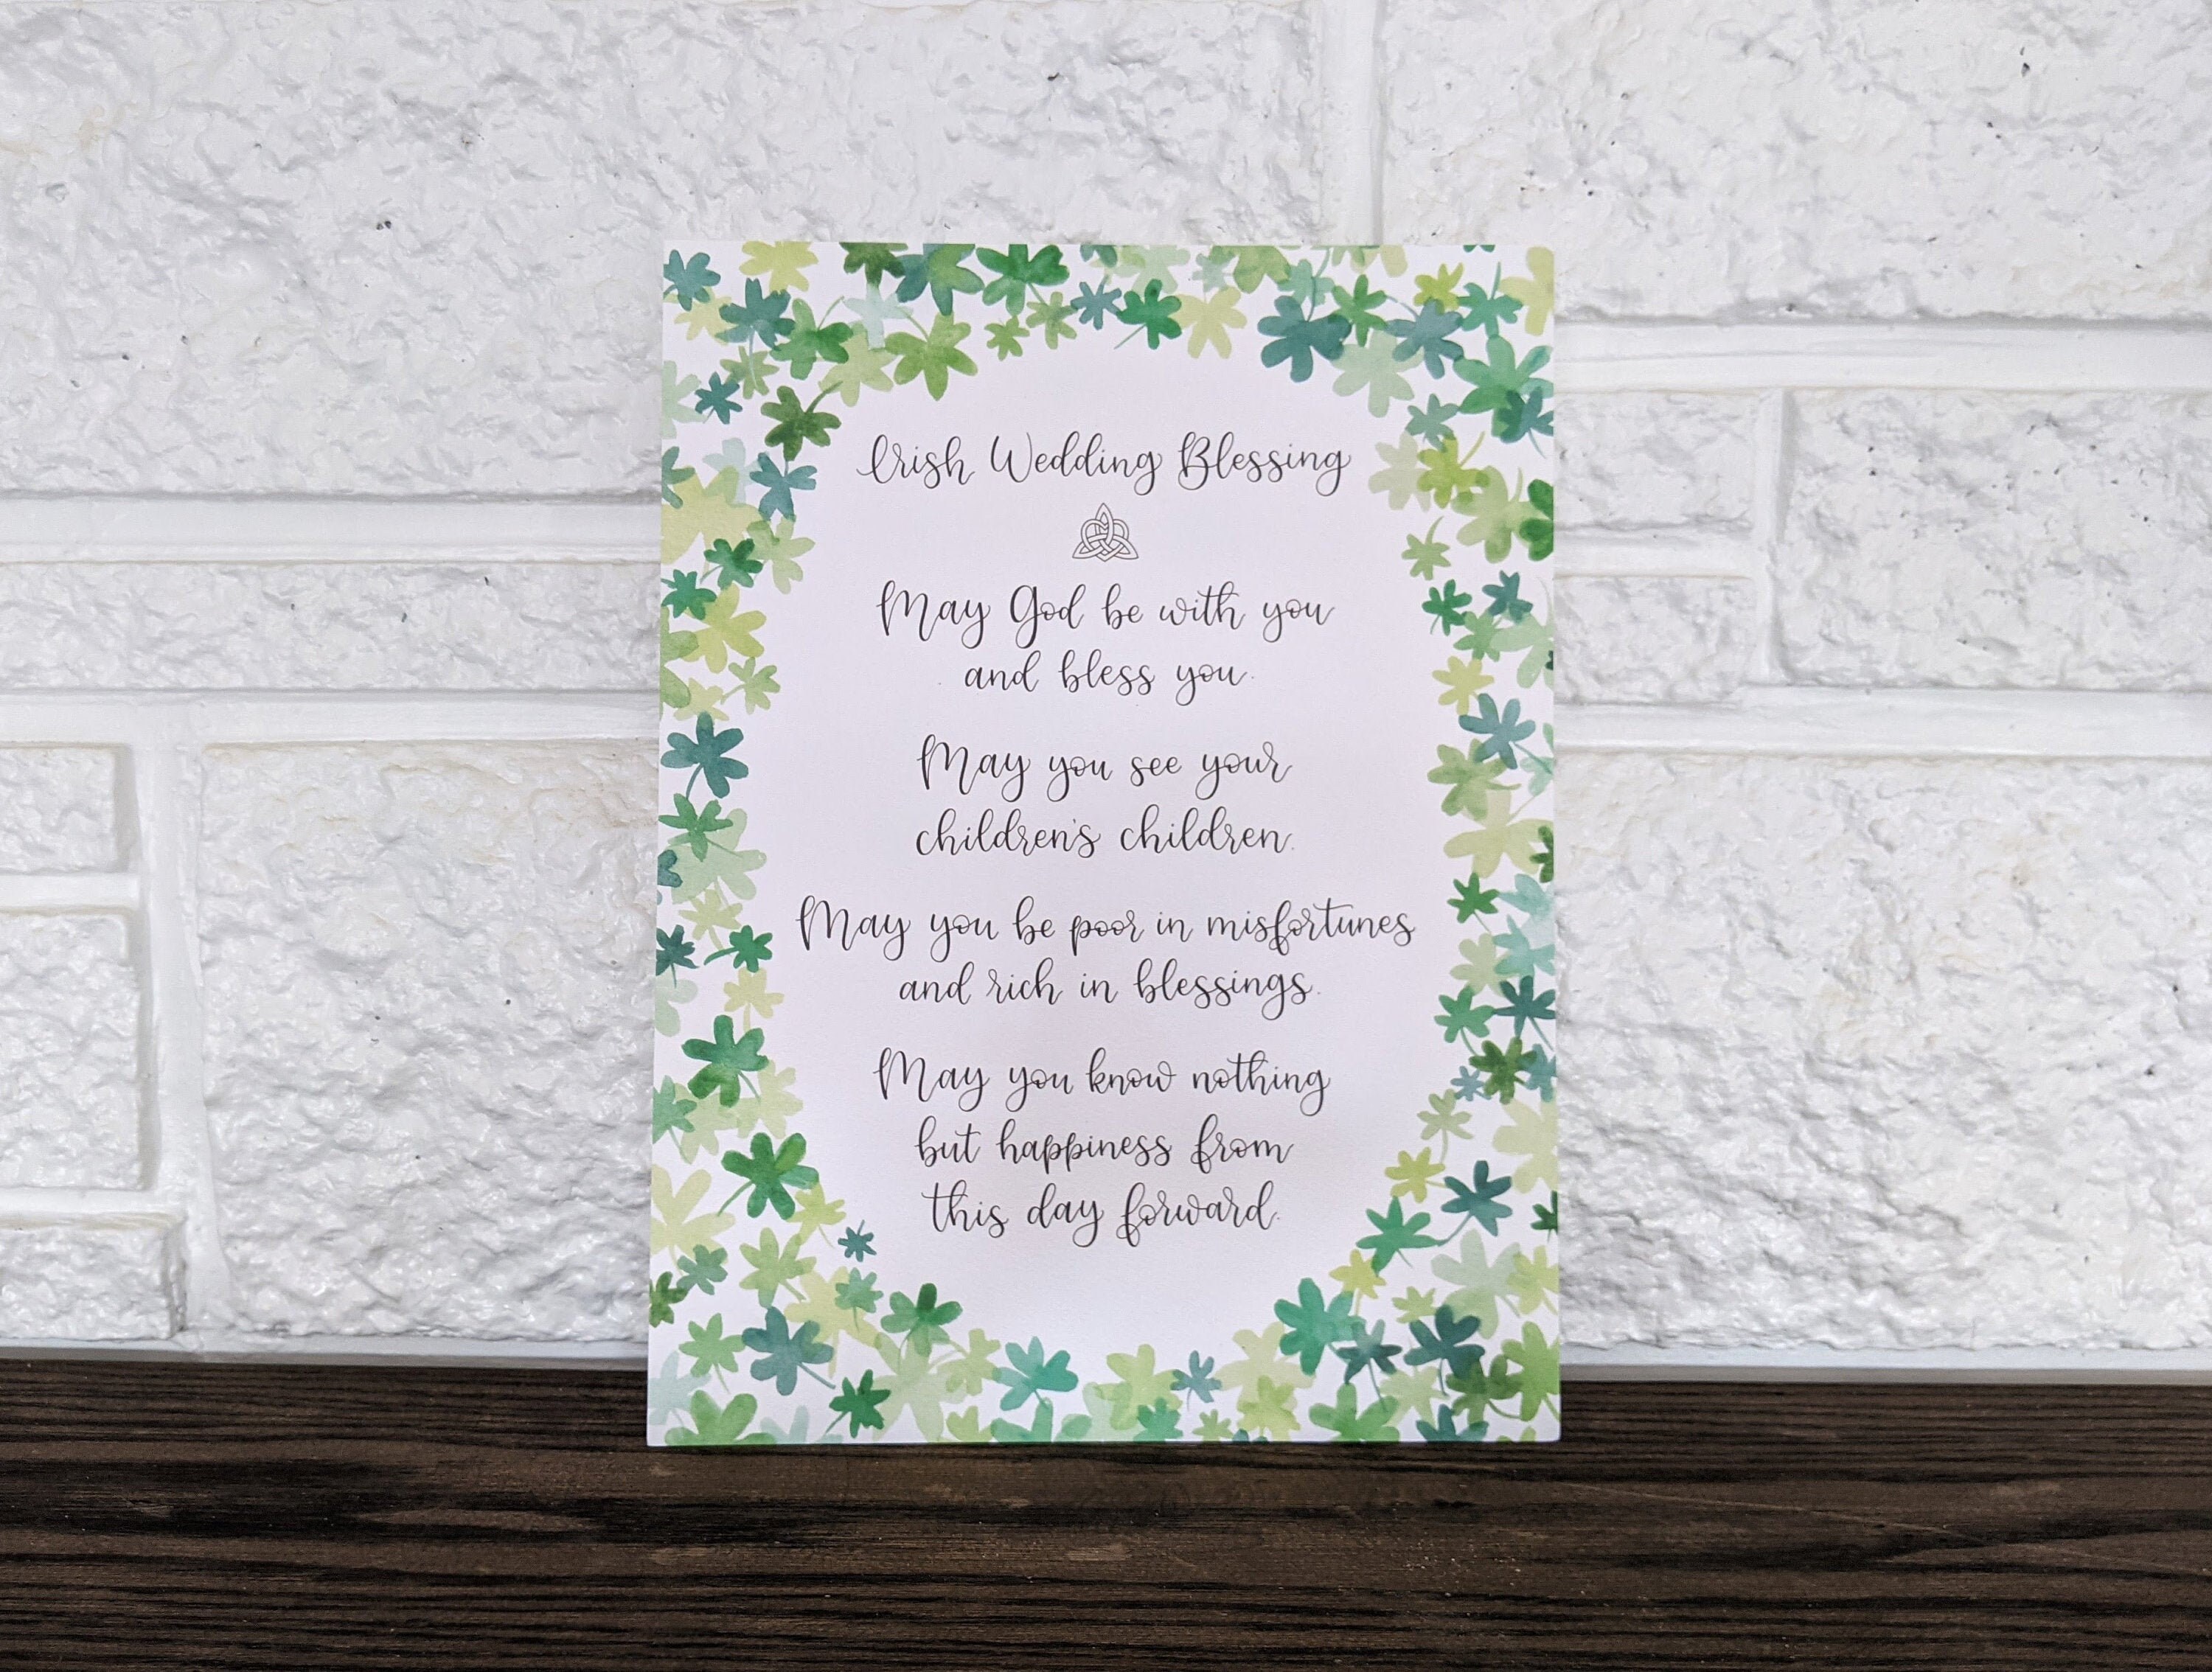 Irish Wedding Blessing
May God be with you
and bless you.
May you see your
children's children.
May you be poor in misfortunes
and rich in blessings.
May you know nothing
but happiness from
this day forward.